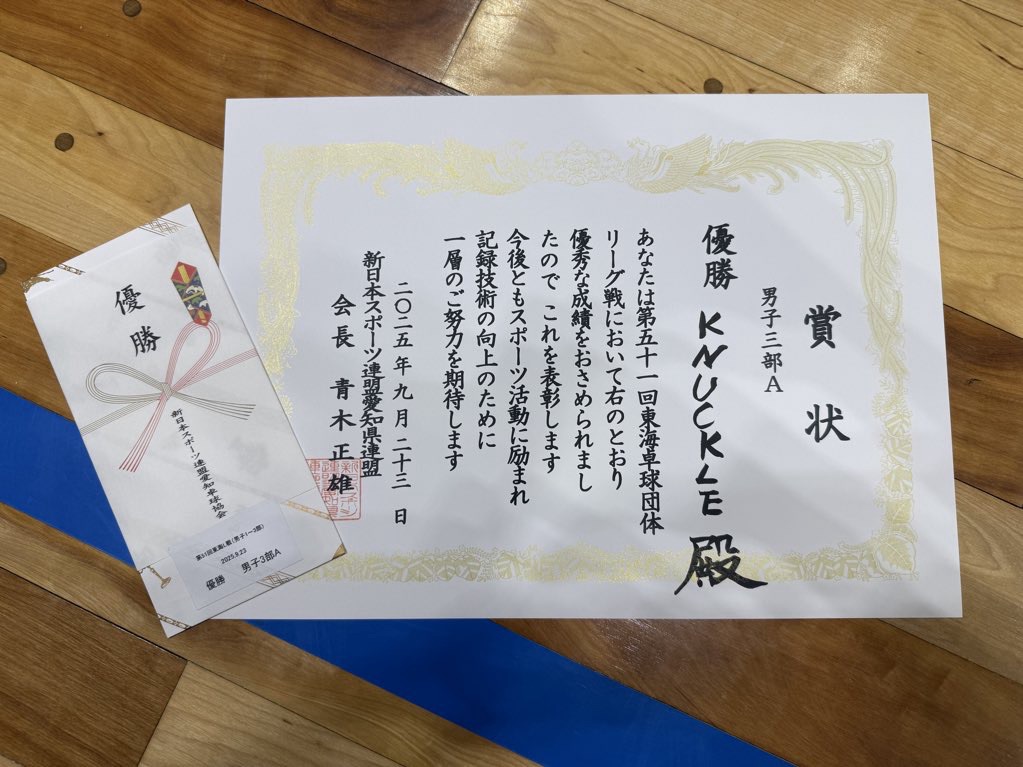 賞状
男子三部A
優勝 KNUCKLE 殿
あなたは第五十一回東海卓球団体
リーグ戦において右のとおり
優秀な成績をおさめられまし
たので これを表彰します
今後ともスポーツ活動に励まれ
記録技術の向上のために
一層のご努力を期待します
二〇二五年九月二十三日
新日本スポーツ連盟愛知県連盟
会長 青木正雄
優勝
新日本スポーツ連盟愛知卓球協会
2025.9.23
優勝 男子3部A